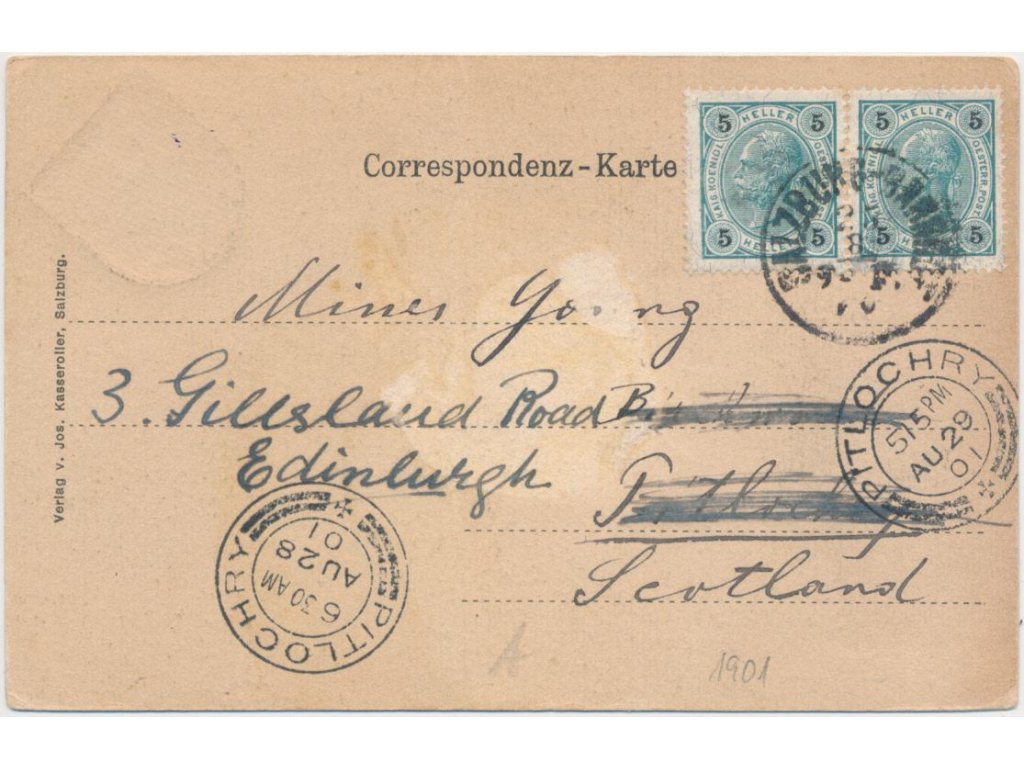 5 HELLER 5
KAIS. KOENIGL.
OESTERR. POST
5 HE 5
5 HELLER 5
KAIS. KOENIGL.
OESTERR. POST
5 HELLER 5
Correspondenz-Karte
SALZBURG
Verlag v. Jos. Kasseroller, Salzburg.
Young
3. Gillsland Road
Edinburgh
Pitlochry
Scotland
PITLOCHRY
515 PM
AU 29
01
PITLOCHRY
6 30 AM
AU 28
01
A
1901